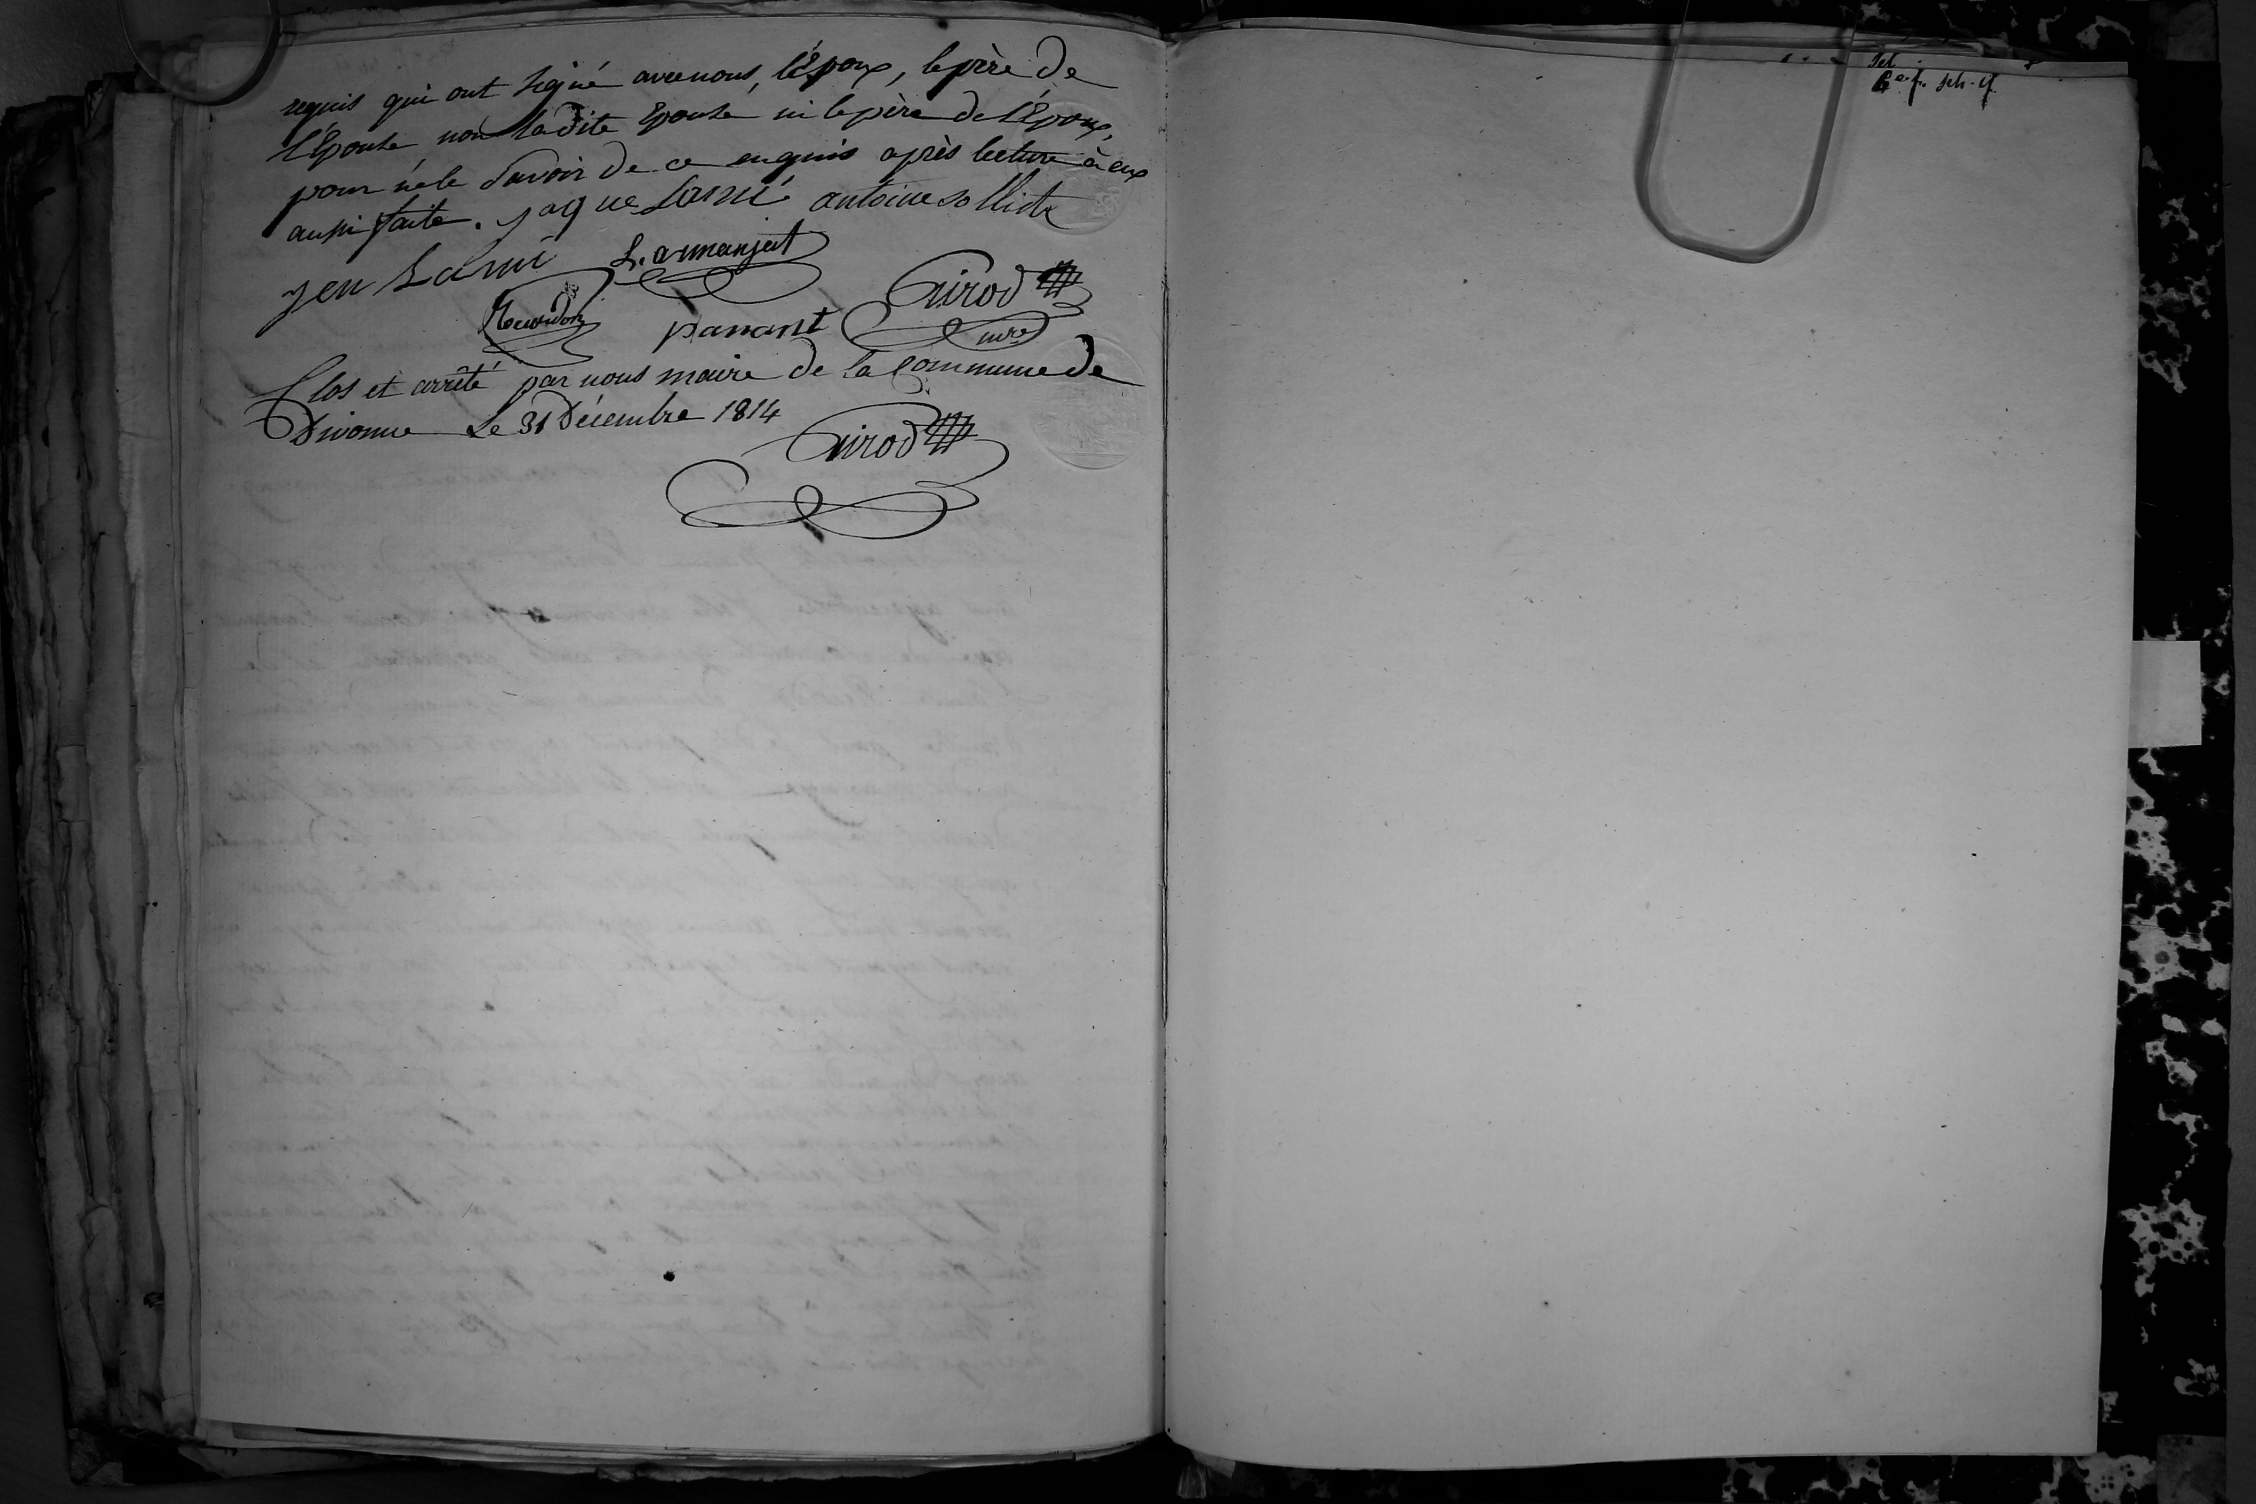 requis qui ont signé avec nous, l'Epoux, le père de
l'Epouse non ladite Epouse ni le père de l'Epoux,
pour ne le Savoir de ce enquis après lecture à eux
aussi faite. jaque Lami antoine sollicte
jen Lami L. armanjat
Girod
panant
Clos et arrêté par nous maire de la Commune de
Divonne Le 31 Décembre 1814
Girod